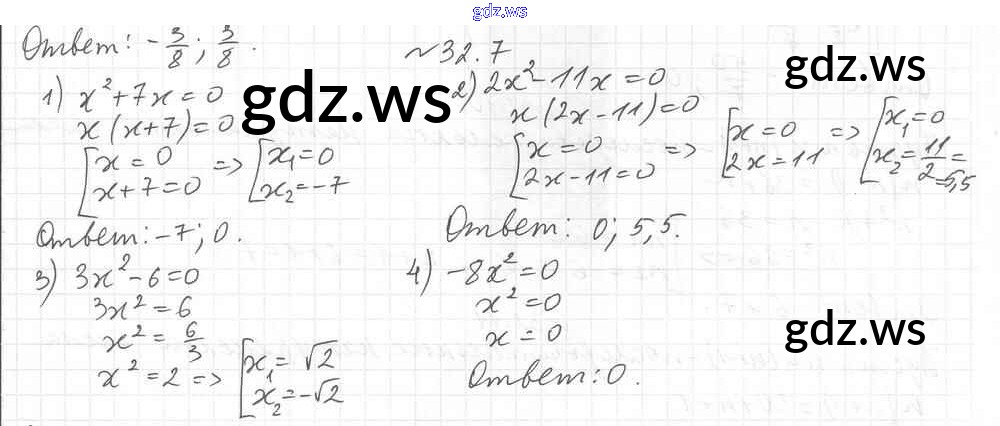 gdz.ws
Ответ: -3/8; 3/8.
№32.7
gdz.ws
1) x²+7x=0
x(x+7)=0
[x=0
x+7=0 => [x₁=0
x₂=-7
Ответ: -7; 0.
gdz.ws
2) 2x²-11x=0
x(2x-11)=0
[x=0
2x-11=0 => [x=0
2x=11 => [x₁=0
x₂=11/2=
=5,5
Ответ: 0; 5,5.
3) 3x²-6=0
3x²=6
x²=6/3
x²=2 => [x₁=√2
x₂=-√2
4) -8x²=0
x²=0
x=0
Ответ: 0.
gdz.ws